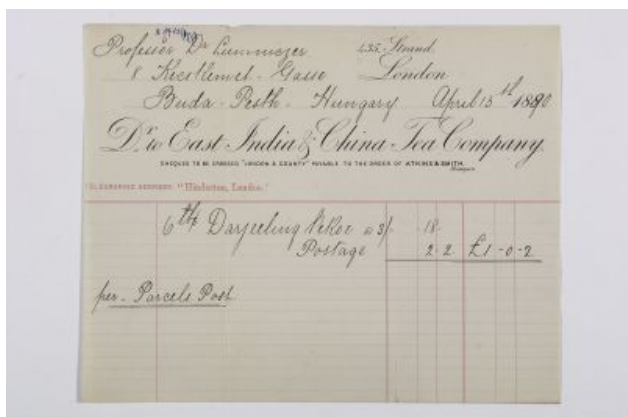 Professor Dr 435. Strand.
8 Kecskemet - Gasse London
Buda - Pesth - Hungary April 15th 1890
Dr to East India & China Tea Company.
CHEQUES TO BE CROSSED "LONDON & COUNTY" PAYABLE TO THE ORDER OF ATKINS & SMITH,
Managers
TELEGRAPHIC ADDRESS: "Hindostan, London."
6 lb Darjeeling Pekoe @ 3/- 18.
Postage 2.2 £1-0-2
per - Parcels Post